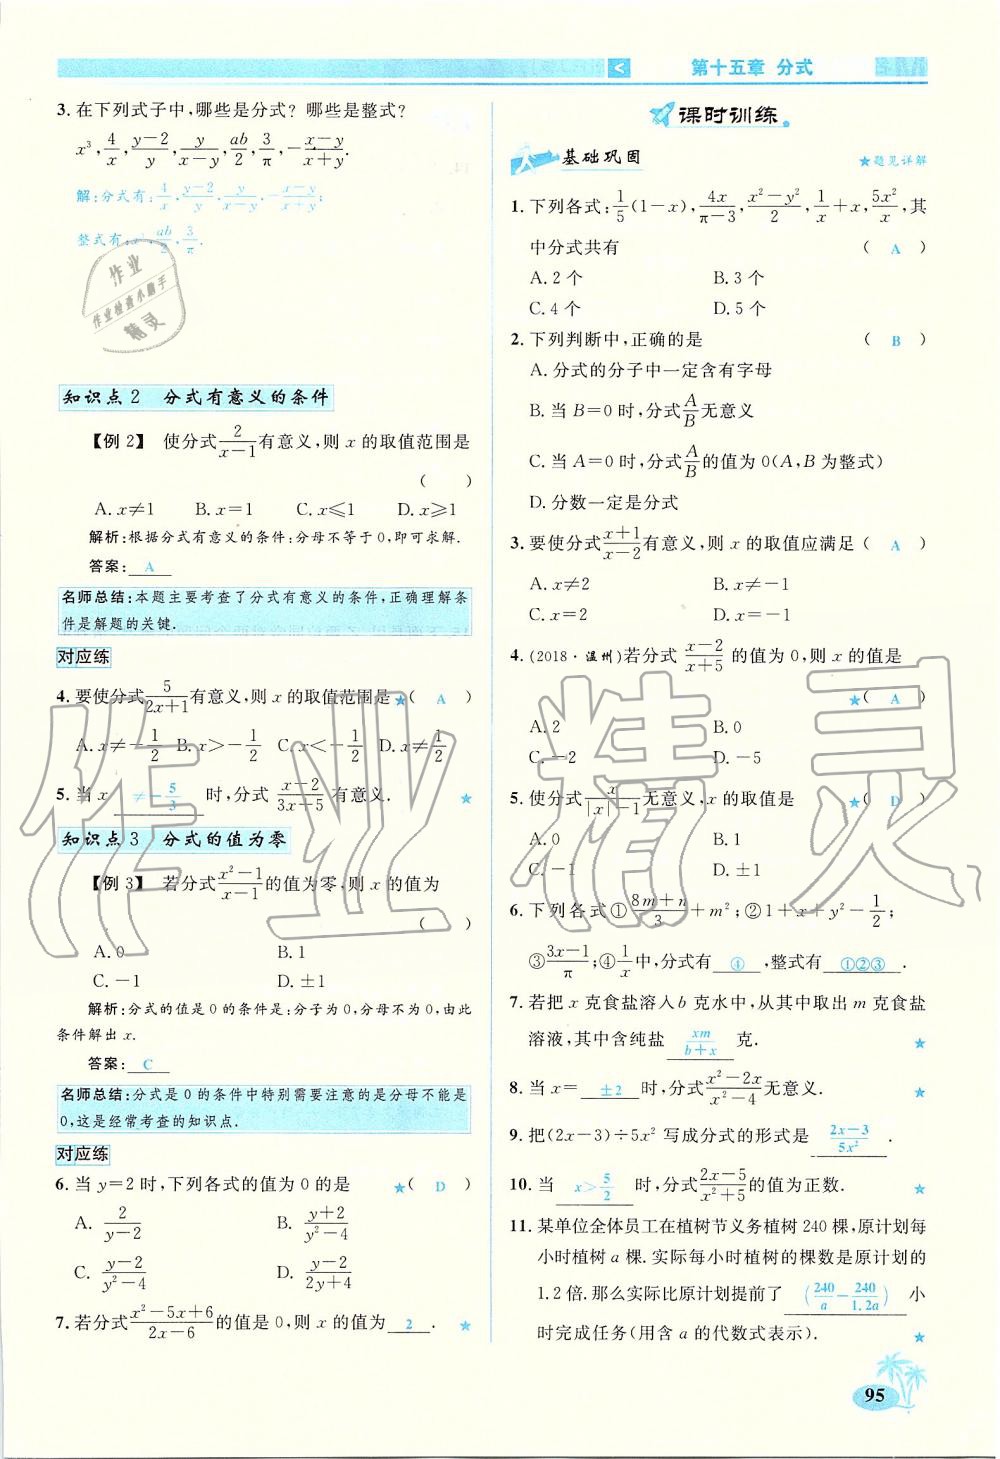 第十五章 分式
3. 在下列式子中,哪些是分式? 哪些是整式?
x³, 4/x, (y−2)/y, y/(x−y), ab/2, 3/π, −(x−y)/(x+y).
解:分式有: 4/x, (y−2)/y, y/(x−y), −(x−y)/(x+y);
整式有: x³, ab/2, 3/π.
作业
作业检查小助手
精灵
知识点2 分式有意义的条件
【例2】 使分式 2/(x−1) 有意义,则 x 的取值范围是
( )
A. x≠1 B. x=1 C. x≤1 D. x≥1
解析:根据分式有意义的条件:分母不等于0,即可求解.
答案: A
名师总结:本题主要考查了分式有意义的条件,正确理解条
件是解题的关键.
对应练
4. 要使分式 5/(2x+1) 有意义,则 x 的取值范围是 ★( A )
A. x≠−1/2 B. x>−1/2 C. x<−1/2 D. x≠1/2
5. 当 x ≠−5/3 时,分式 (x−2)/(3x−5) 有意义. ★
知识点3 分式的值为零
【例3】 若分式 (x²−1)/(x−1) 的值为零,则 x 的值为
( )
A. 0 B. 1
C. −1 D. ±1
解析:分式的值是0的条件是:分子为0,分母不为0,由此
条件解出 x.
答案: C
名师总结:分式是0的条件中特别需要注意的是分母不能是
0,这是经常考查的知识点.
对应练
6. 当 y=2 时,下列各式的值为0的是 ★( D )
A. 2/(y−2) B. (y+2)/(y²−4)
C. (y−2)/(y²−4) D. (y−2)/(2y+4)
7. 若分式 (x²−5x+6)/(2x−6) 的值是0,则 x 的值为 2 . ★
课时训练
基础巩固 ★题见详解
1. 下列各式: 1/5(1−x), 4x/(π−3), (x²−y²)/2, 1/x+x, 5x²/x, 其
中分式共有 ( A )
A. 2个 B. 3个
C. 4个 D. 5个
2. 下列判断中,正确的是 ( B )
A. 分式的分子中一定含有字母
B. 当 B=0 时,分式 A/B 无意义
C. 当 A=0 时,分式 A/B 的值为0(A,B为整式)
D. 分数一定是分式
3. 要使分式 (x+1)/(x−2) 有意义,则 x 的取值应满足 ( A )
A. x≠2 B. x≠−1
C. x=2 D. x=−1
4. (2018·温州)若分式 (x−2)/(x+5) 的值为0,则 x 的值是
★( A )
A. 2 B. 0
C. −2 D. −5
5. 使分式 x/(|x|−1) 无意义,x 的取值是 ★( D )
A. 0 B. 1
C. −1 D. ±1
6. 下列各式① (8m+n)/3+m²;②1+x+y²−1/2;
③ (3x−1)/π;④ 1/x 中,分式有 ④ ,整式有 ①②③ .
7. 若把 x 克食盐溶入 b 克水中,从其中取出 m 克食盐
溶液,其中含纯盐 xm/(b+x) 克. ★
8. 当 x= ±2 时,分式 (x²−2x)/(x²−4) 无意义.
9. 把(2x−3)÷5x² 写成分式的形式是 (2x−3)/5x² .
10. 当 x>5/2 时,分式 (2x−5)/(x²+5) 的值为正数. ★
11. 某单位全体员工在植树节义务植树240棵,原计划每
小时植树 a 棵. 实际每小时植树的棵数是原计划的
1.2倍. 那么实际比原计划提前了 (240/a−240/1.2a) 小
时完成任务(用含 a 的代数式表示). ★
95
作业精灵